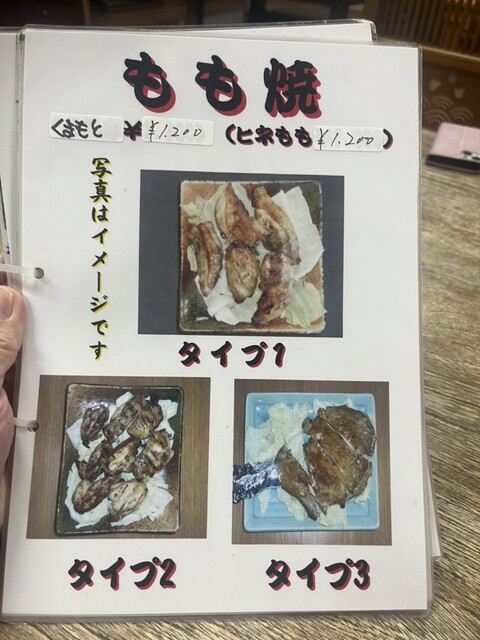 もも焼
くまもと ¥ ¥1.200 (ヒネもも ¥1.200)
写真はイメージです
タイプ1
タイプ2
タイプ3